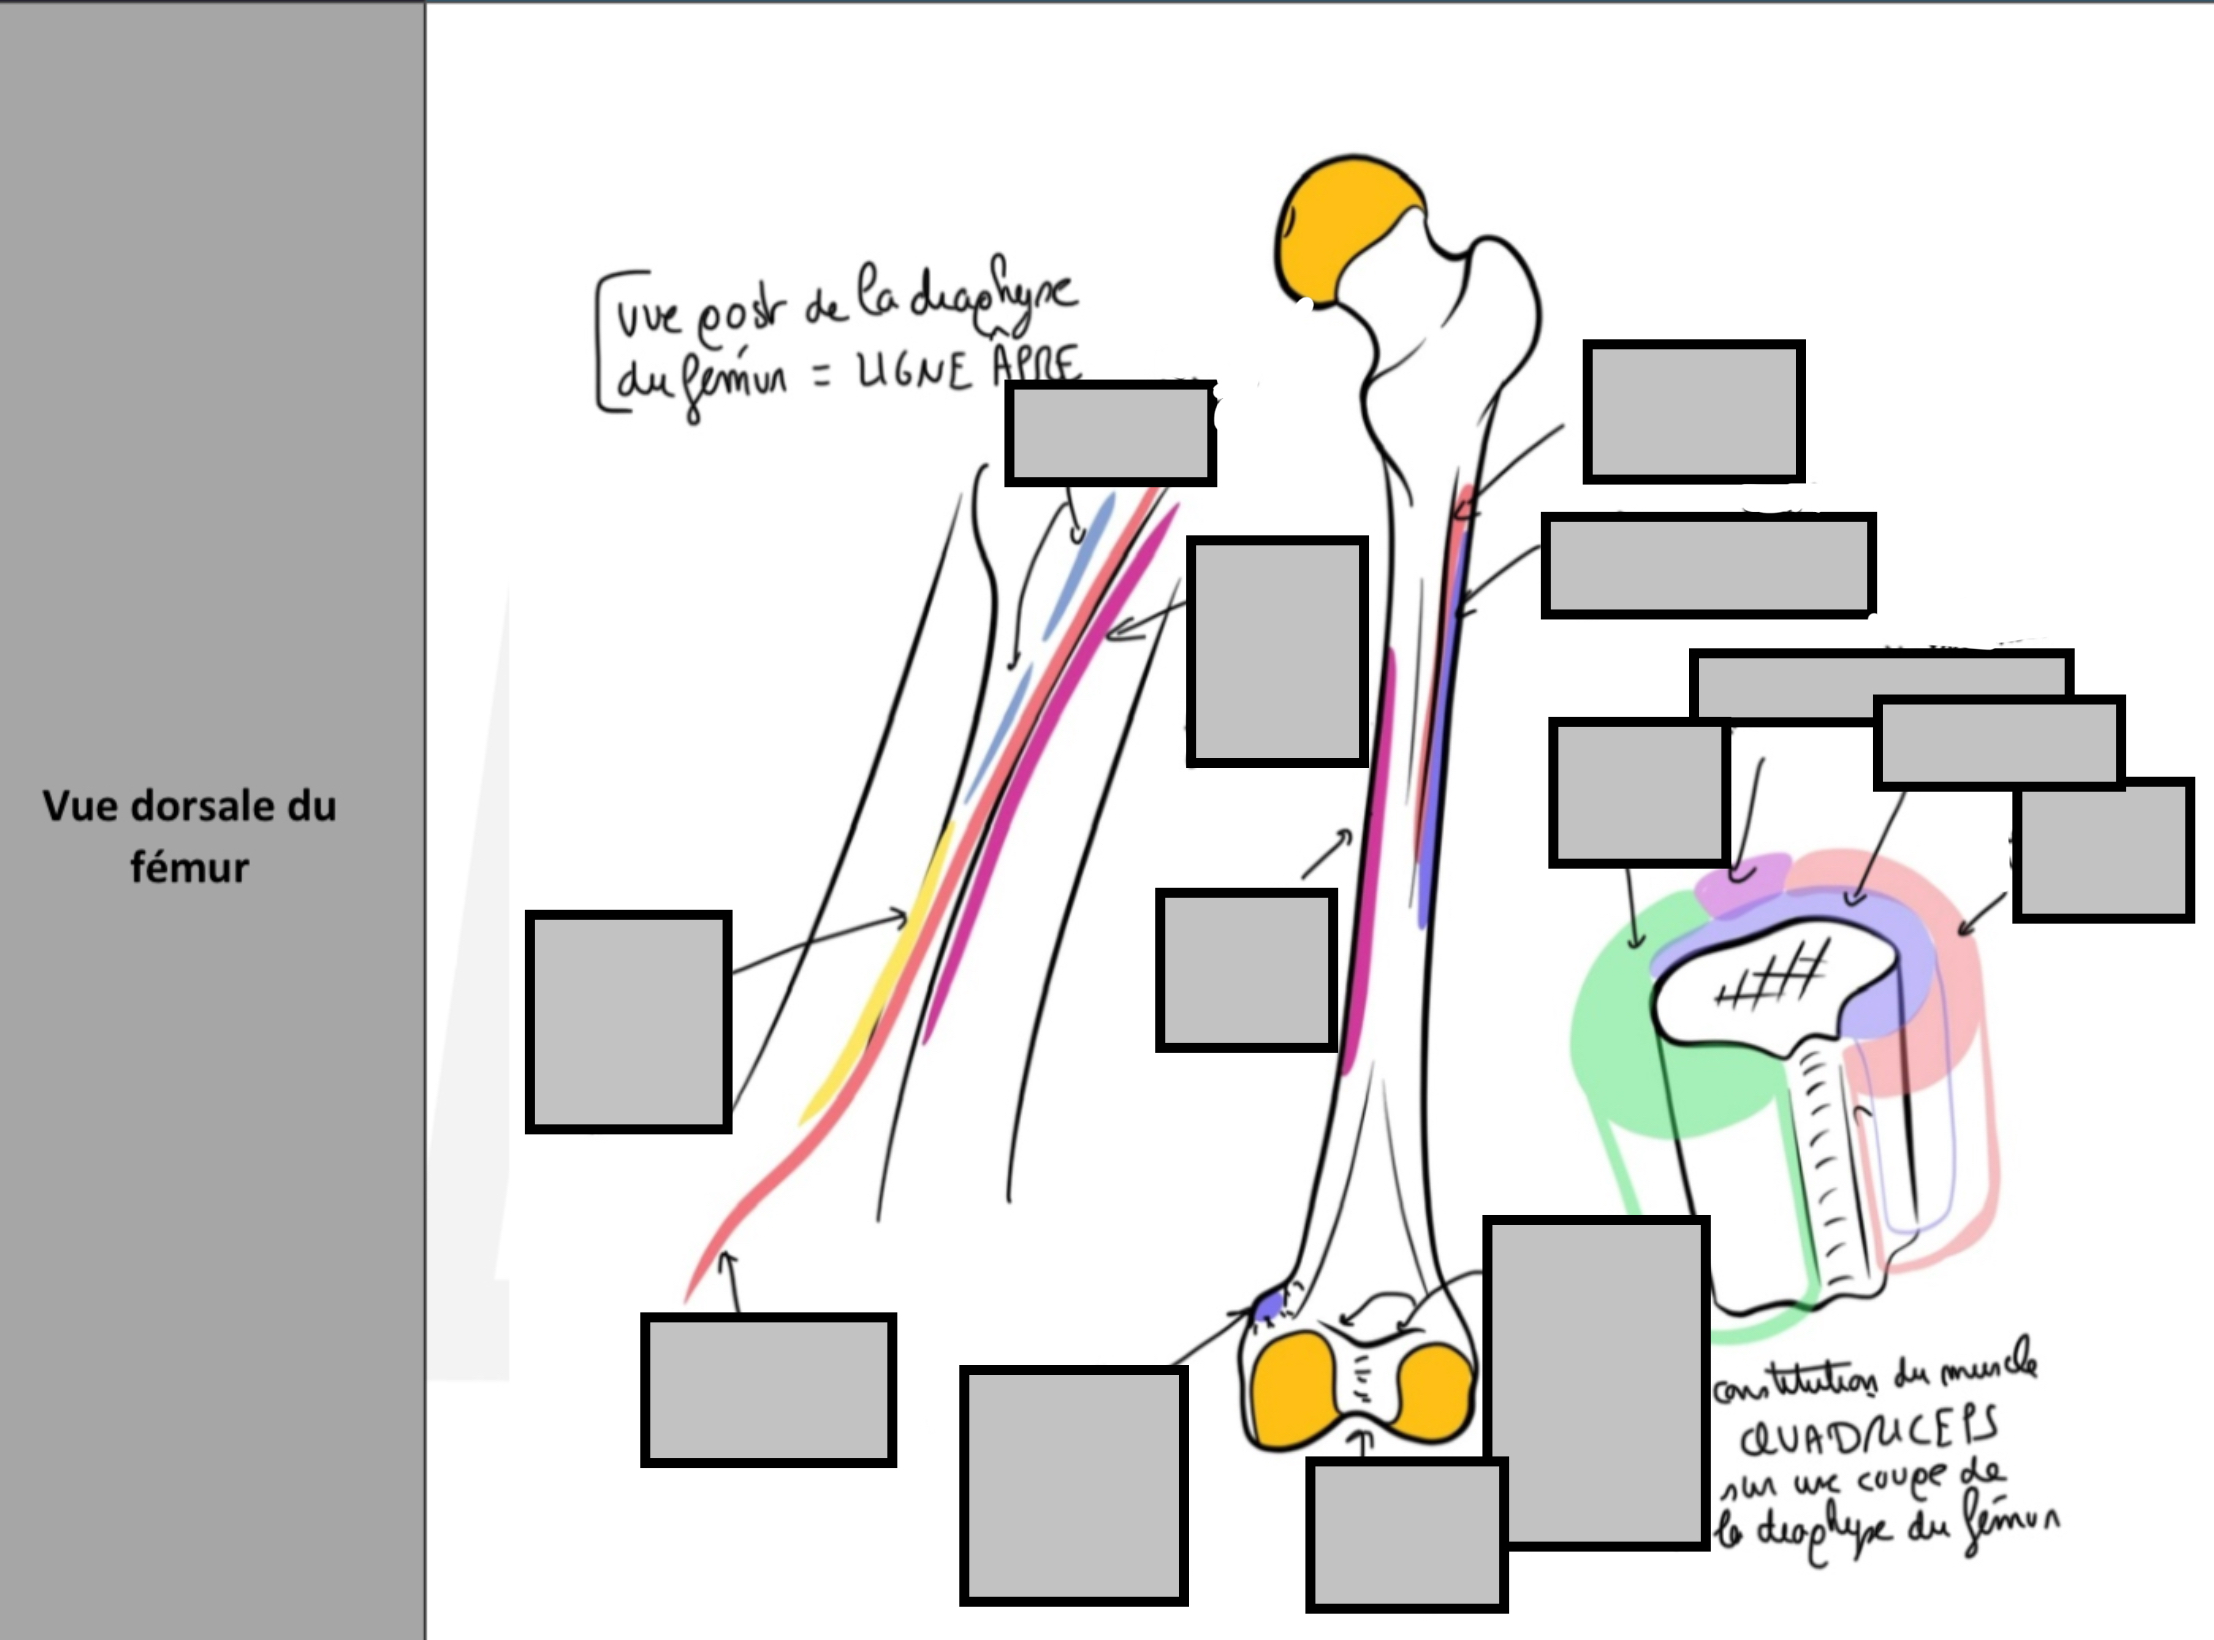 Vue dorsale du
fémur
vue post de la diaphyse
du fémur = LIGNE APRE
constitution du muscle
QUADRICEPS
sur une coupe de
la diaphyse du fémur